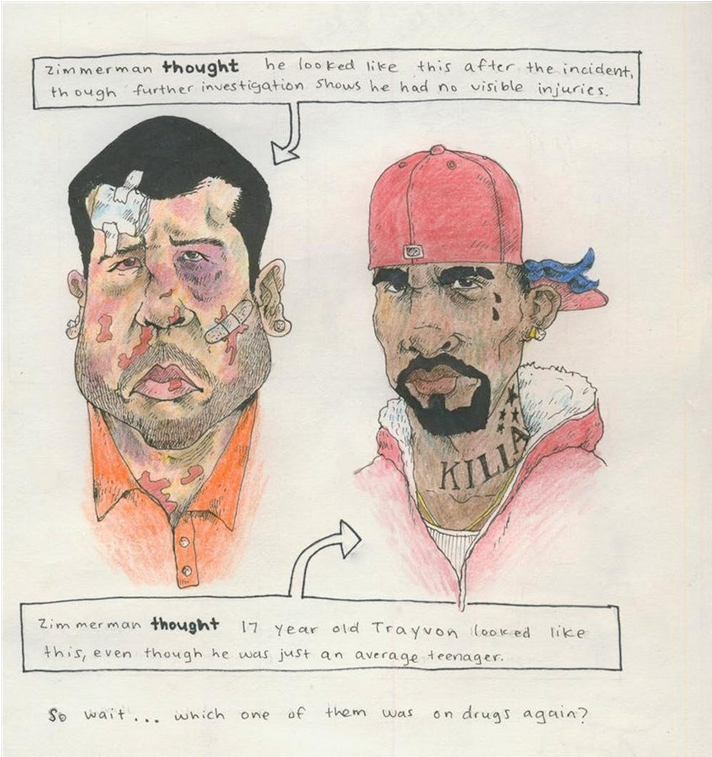 Zimmerman thought he looked like this after the incident,
though further investigation shows he had no visible injuries.
KILLA
Zimmerman thought 17 year old Trayvon looked like
this, even though he was just an average teenager.
So wait... which one of them was on drugs again?